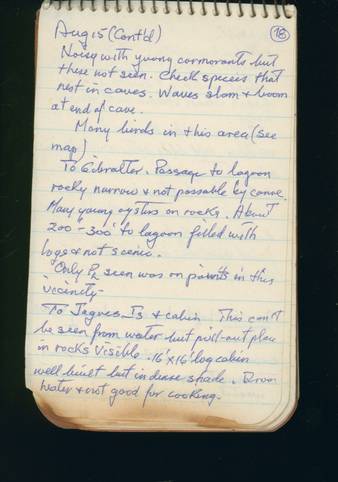 Aug 15 (Cont'd) 18
Noisy with young cormorants but
these not seen. Check species that
nest in caves. Waves slam & boom
at end of cave.
Many birds in this area (see
map)
To Gibralter. Passage to lagoon
rocky narrow & not passable by canoe.
Many young oysters on rocks. About
200'-300' to lagoon filled with
logs & not scenic.
Only seen was on points in this
vicinity.
To Jaques Is & cabin This can't
be seen from water but pull-out place
in rocks visible. 16'x16' log cabin
well built but in dense shade. Brown
water & not good for cooking.